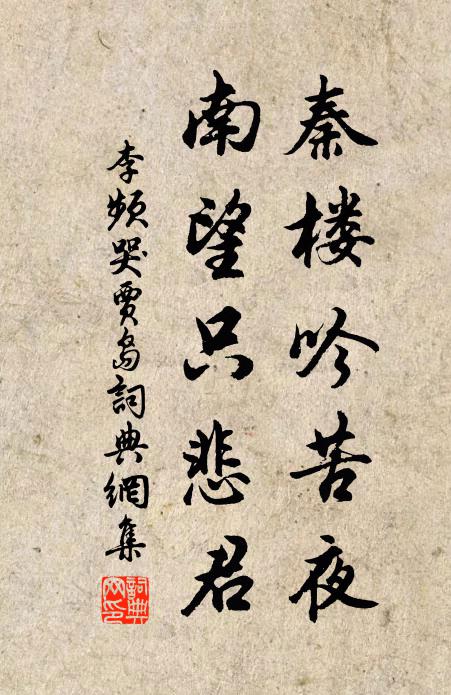 秦楼吟苦夜
南望只悲君
李频哭贾岛詞典網集
詞典